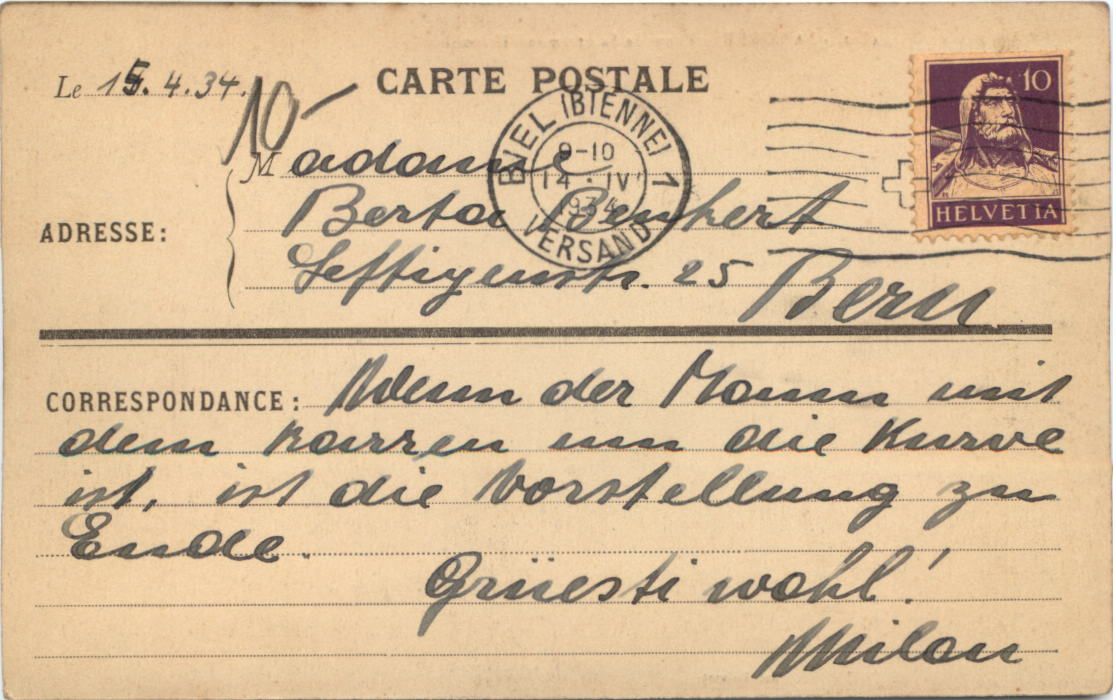 Le 15.4.34.
10-
CARTE POSTALE
BIEL (BIENNE) 1
9-10
14·IV
1934
VERSAND
10
HELVETIA
Madame
ADRESSE:
Berta
Seftigenstr. 25 Bern
CORRESPONDANCE: Wenn der Mann mit
dem Karren um die Kurve
ist, ist die Vorstellung zu
Ende.
Grüesti wohl!
Milan